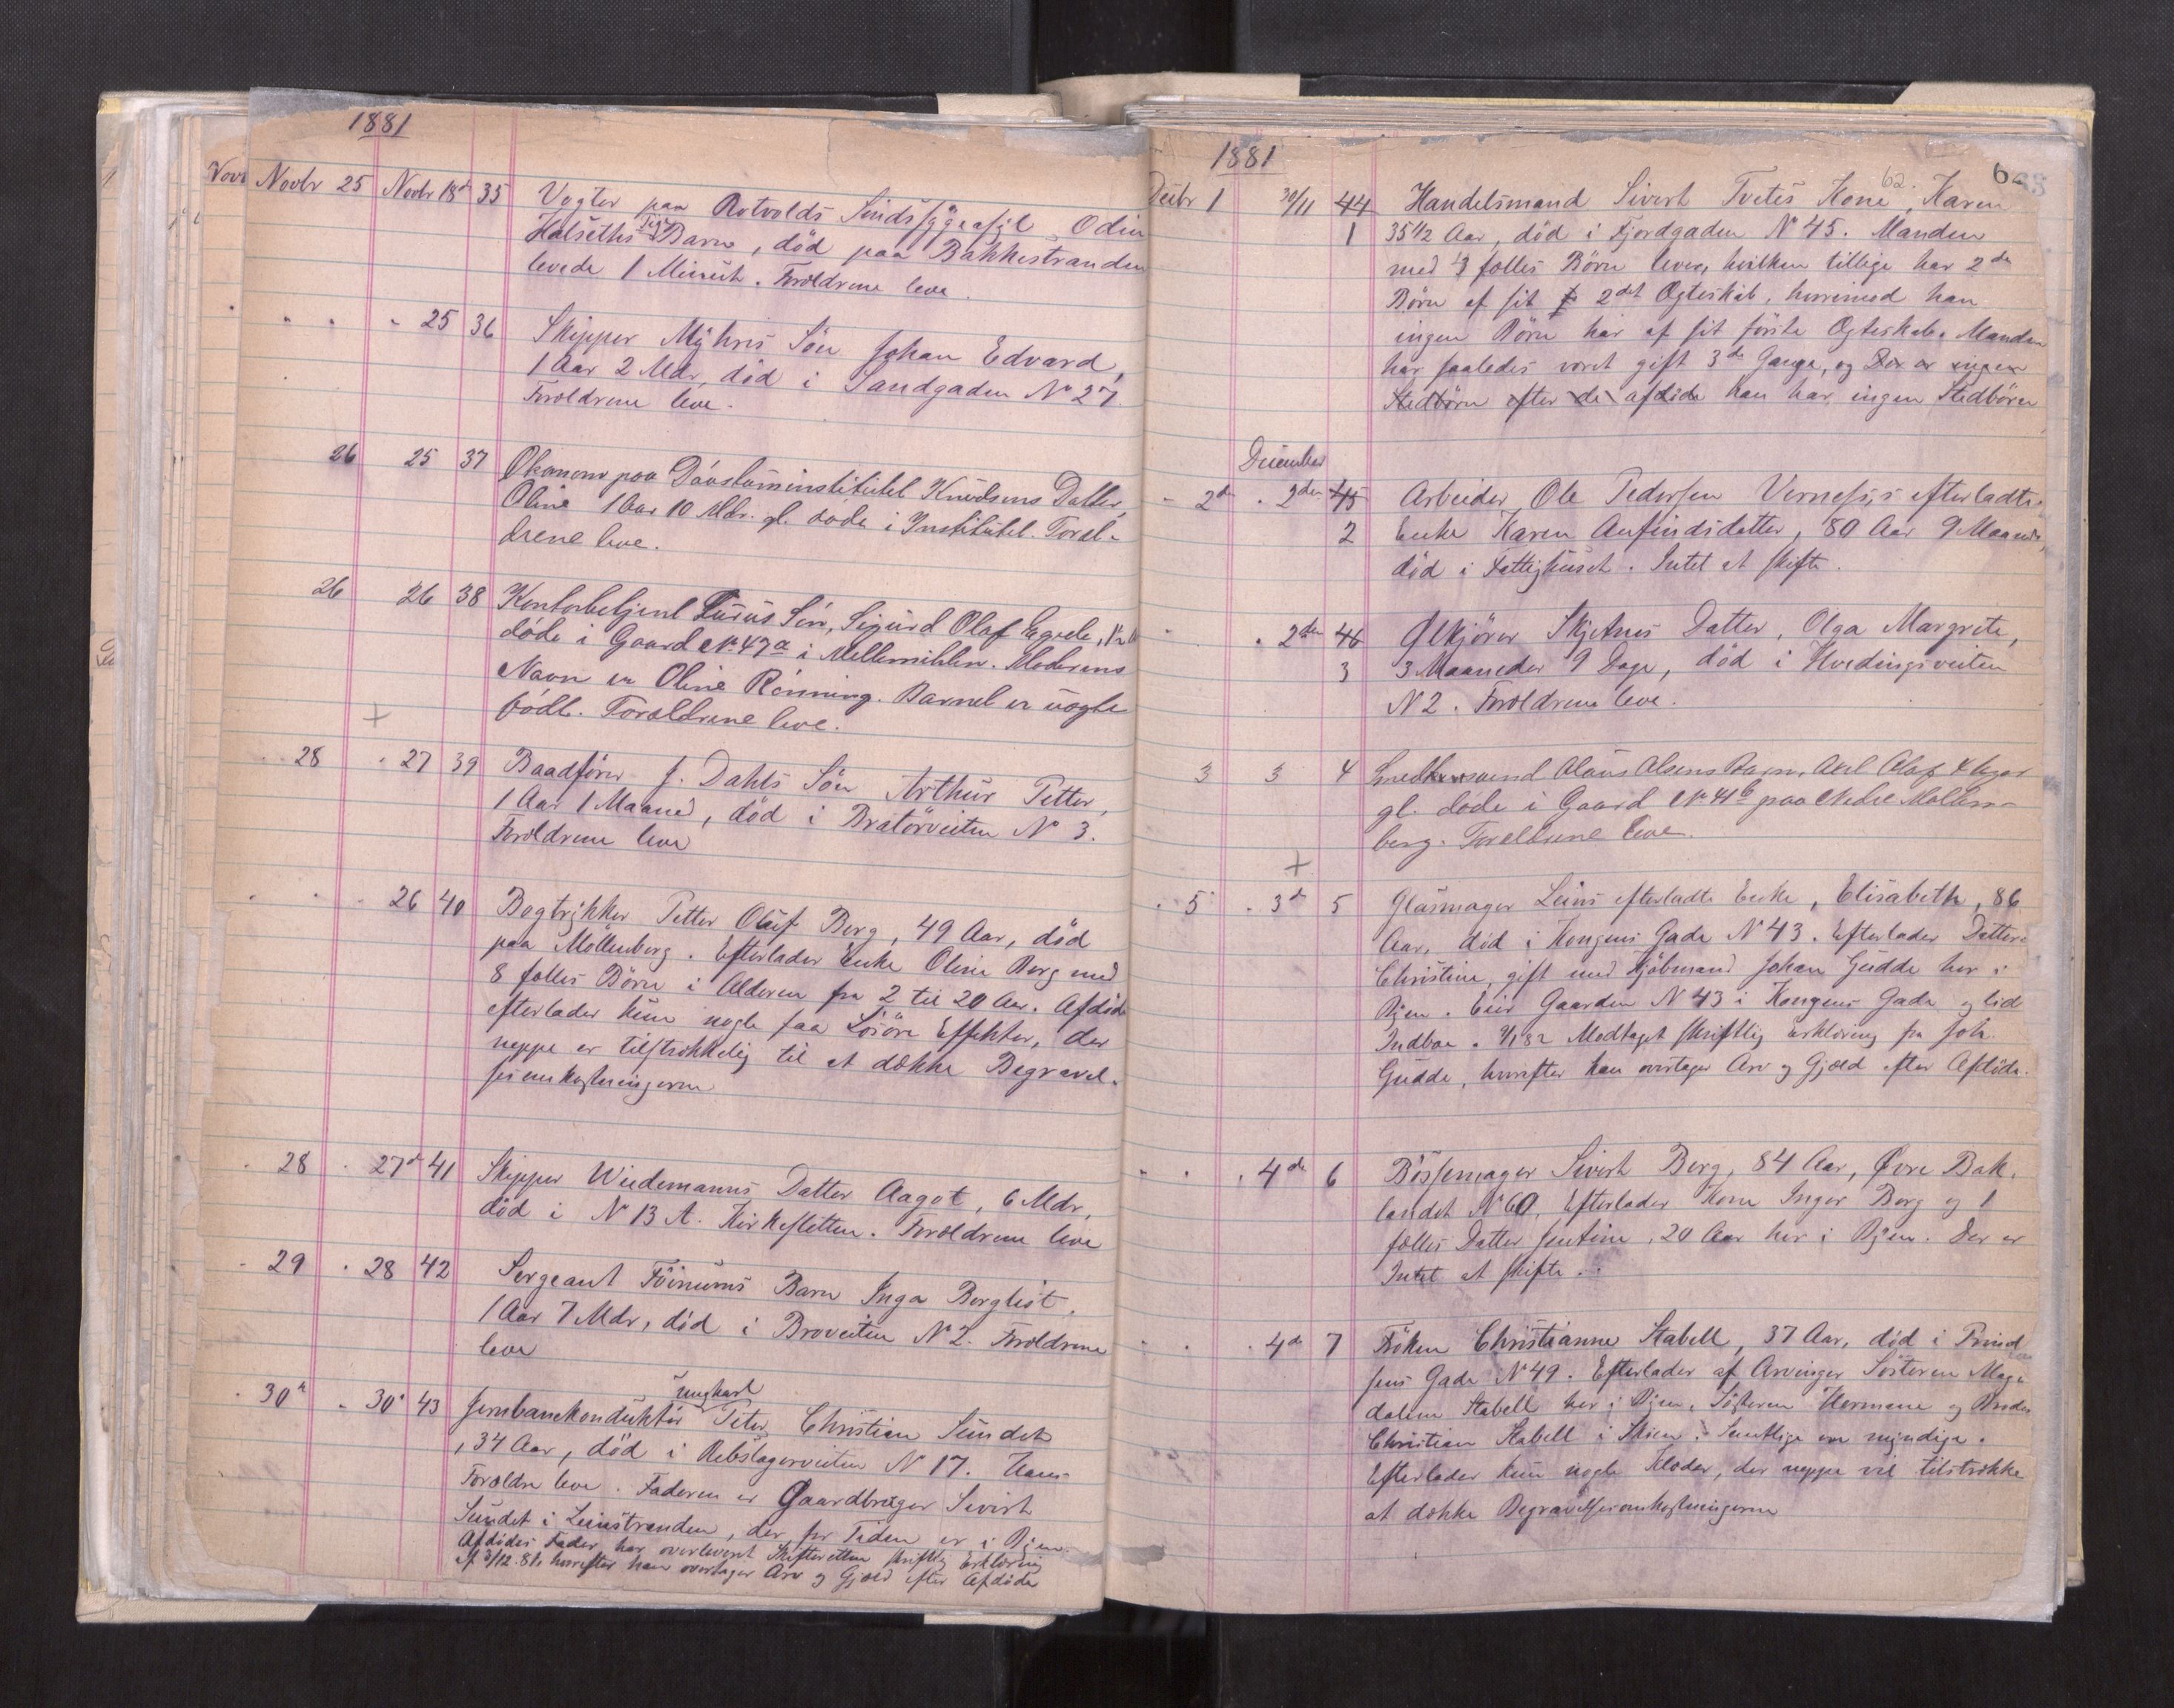 1881
Novbr 25 Novbr 18d 35 Vogter paa Rotvolds Sindssygeasyl Odin
Halseths Barn, död paa Bakkestranden
levede 1 Minut. Forældrene leve.
" " " 25 36 Skipper Myhres Sön Johan Edvard,
1 Aar 2 Mdr, död i Sandgaden No 27.
Forældrene leve.
26 25 37 Økonom paa Døvstuminstitutet Knudsens Datter,
Oline 1 Aar 10 Mdr. gl. døde i Institutet. Foræl-
drene leve.
26 26 38 Kontorbetjent Sön, Sigurd Olaf
døde i Gaard No 47a i Mellemilden. Moderens
Navn er Oline Rønning. Barnet er uægte
født. Forældrene leve.
28 " 27 39 Baadförer J. Dahls Sön Arthur Petter,
1 Aar 1 Maaned, död i Bratörveiten No 3.
Forældrene leve
" " " 26 40 Bogtrykker Petter Oluf Berg, 49 Aar, död
paa Möllenberg. Efterlader Enke Oline Berg med
8 fælles Börn i Alderen fra 2 til 20 Aar. Afdöde
efterlader kun nogle faa Lösöre Effekter, der
neppe er tilstrækkelig til at dække Begravel-
sesomkostningerne
" 28 " 27d 41 Skipper Wiedemanns Datter Aagot, 6 Mdr,
död i No 13 A. Kirkesletten. Forældrene leve
" 29 " 28 42 Sergeant Foinums Barn Inga Bergliot,
1 Aar 7 Mdr, död i Broveiten No 2. Forældrene
leve
" 30te " 30te 43 Jernbanekonduktör ungkarl Peter Christian Sundet
, 34 Aar, död i Rebslagerveiten No 17. Hans
Forældre leve. Faderen er Gaardbruger Sivert
Sundet i Leinstranden, der for Tiden er i Byen.
Afdödes Fader har overleveret Skifteretten skriftlig Erklæring
af 3/12 81, hvorefter han overtager Arv og Gjæld efter Afdöde
1881
62.
63
Decbr 1 30/11 44 Handelsmand Sivert Tvetes Kone, Karen
1 35 1/2 Aar, död i Fjordgaden No 45. Manden
med 3 fælles Börn lever, hvilken tillige har 2de
Börn af sit 2det Ægteskab, hvorimod han
ingen Börn har af sit förste Ægteskab. Manden
har saaledes været gift 3de Gange, og Der er ingen
Stedbörn efter de afdöde han har ingen Stedbörn
December
" 2den " 2den 45 Arbeider Ole Pedersen Verness's efterladte
2 Enke Karen Anfindsdatter, 80 Aar 9 Maaneder,
död i Fattighuset. Intet at skifte.
" " 2den 46 Ølkjörer Skjetnes Datter, Olga Margrete,
3 3 Maaneder 9 Dage, död i Hvedingsveiten
No 2. Forældrene leve.
3 3 4 Smedesvend Olaus Olsens Barn, Axel Olaf 4 Uger
gl. døde i Gaard No 41b paa Nedre Møllen-
berg. Forældrene leve.
" 5 " 3d 5 Glasmager Leins efterladte Enke, Elisabeth, 86
Aar, död i Kongens Gade No 43. Efterlader Datter
Christine, gift med Kjöbmand Johan Gudde her i
Byen. Eier Gaarden No 43 i Kongens Gade og lidt
Indboe. Modtaget skriftlig Erklæring fra Joh.
Gudde, hvorefter han overtager Arv og Gjæld efter Afdöde.
" " " 4de 6 Bössemager Sivert Berg, 84 Aar, Øvre Bak-
landet No 60. Efterlader Kone Inger Berg og 1
fælles Datter Jentine, 20 Aar her i Byen. Der er
Intet at skifte.
" " " 4de 7 Fröken Christianne Stabell, 37 Aar, död i Prind
sens Gade No 49. Efterlader af Arvinger Söstrene Mag-
dalene Stabell her i Byen, Sösteren Hermane og Broder
Christian Stabell i Skien. Samtlige ere myndige.
Efterlader kun nogle Klæder, der neppe vil tilstrække
at dække Begravelsesomkostningerne